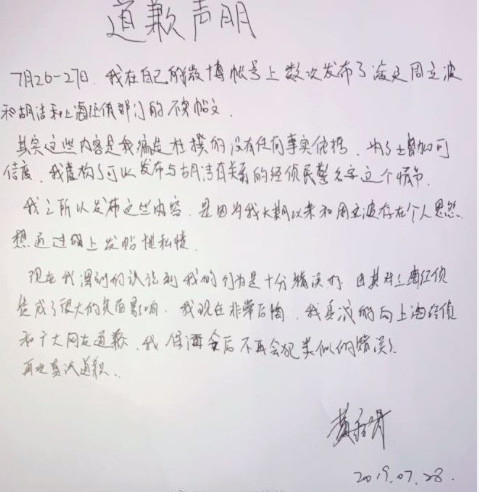 道歉声明
7月26-27日,我在自己的微博帐号上数次发布了涉及周立波
和胡洁和上海经侦部门的不实帖文.
其实这些内容是我编造杜撰的没有任何事实依据,为了增加可
信度,我虚构了可以发布与胡洁有关系的经侦民警名字这个情节.
我之所以发布这些内容,是因为我长期以来和周立波存在个人恩怨.
想通过网上发帖泄私愤.
现在我深刻的认识到我的行为是十分错误的,因其对上海经侦
造成了很大的负面影响,我现在非常后悔,我真诚的向上海经侦
和广大网友道歉,我保证今后不再会犯类似的错误,
再次真诚道歉.
2019.07.28.